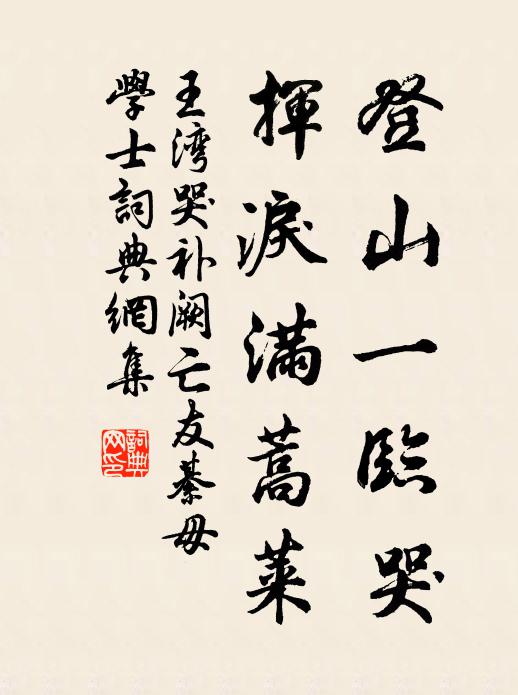 登山一臨哭
揮淚滿蒿萊
王湾哭补阙亡友綦毋
學士詞典網集
詞典網印